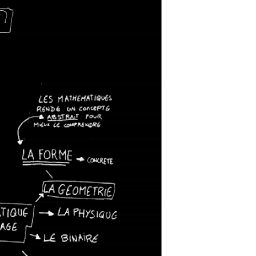 LES MATHEMATIQUES
RENDE UN CONCEPTE
ABSTRAIT POUR
MIEUX LE COMPRENDRE
LA FORME → CONCRETE
LA GEOMETRIE
TIQUE → LA PHYSIQUE
AGE
→ LE BINAIRE